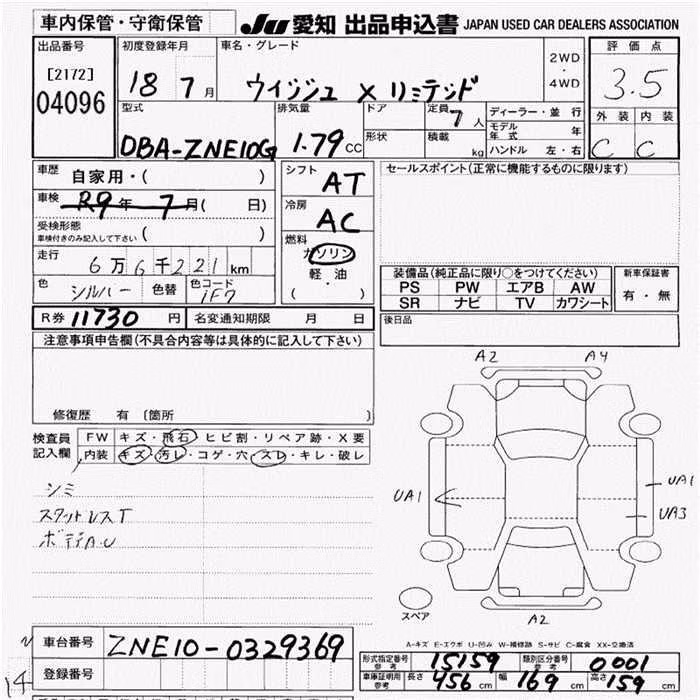 車内保管・守衛保管 JU 愛知 出品申込書 JAPAN USED CAR DEALERS ASSOCIATION
出品番号 初度登録年月 車名・グレード 2WD・4WD 評価点
[2172] 18 7月 ウイッシュ X リミテッド 3.5
04096
型式 排気量 ドア 定員 7人 ディーラー・並行 外装 内装
形状 積載 kg モデル年式 年
DBA-ZNE10G 1.79CC ハンドル 左・右 C C
車歴 自家用・( ) シフト AT セールスポイント(正常に機能するものに限ります)
車検 R9年 7月( 日) 冷房 AC
受検形態 車検付きのみ記入して下さい ( )
燃料 ガソリン
走行 6万6千221km 軽油・( )
装備品(純正品に限り○をつけてください) 新車保証書
色 シルバー 色替 色コード 1F7 PS PW エアB AW 有・無
SR ナビ TV カワシート
R券 11730円 名変通知期限 月 日 後日品
注意事項申告欄(不具合内容等は具体的に記入して下さい)
A2 A4
修復歴 有 〔箇所 〕
検査員記入欄 FW キズ・飛石・ヒビ割・リペア跡・X要
内装 キズ・汚レ・コゲ・穴・スレ・キレ・破レ
シミ UA1 UA1
スタットレスT UA3
ボデーA.U
スペア A2
A-キズ E-エクボ U-凹み W-補修跡 S-サビ C-腐食 XX-交換済
車台番号 ZNE10-0329369
形式指定番号 参考 15159 類別区分番号 参考 0001
登録番号 車庫証明用 参考 長さ 456cm 幅 169cm 高さ 159cm
14